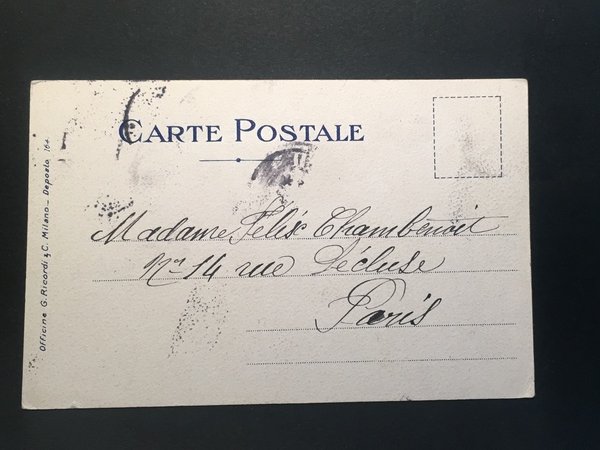 CARTE POSTALE
Madame Félix Chambenoit
No 14 rue Lécluse
Paris
Officine G. Ricordi & C. Milano - Deposto 164